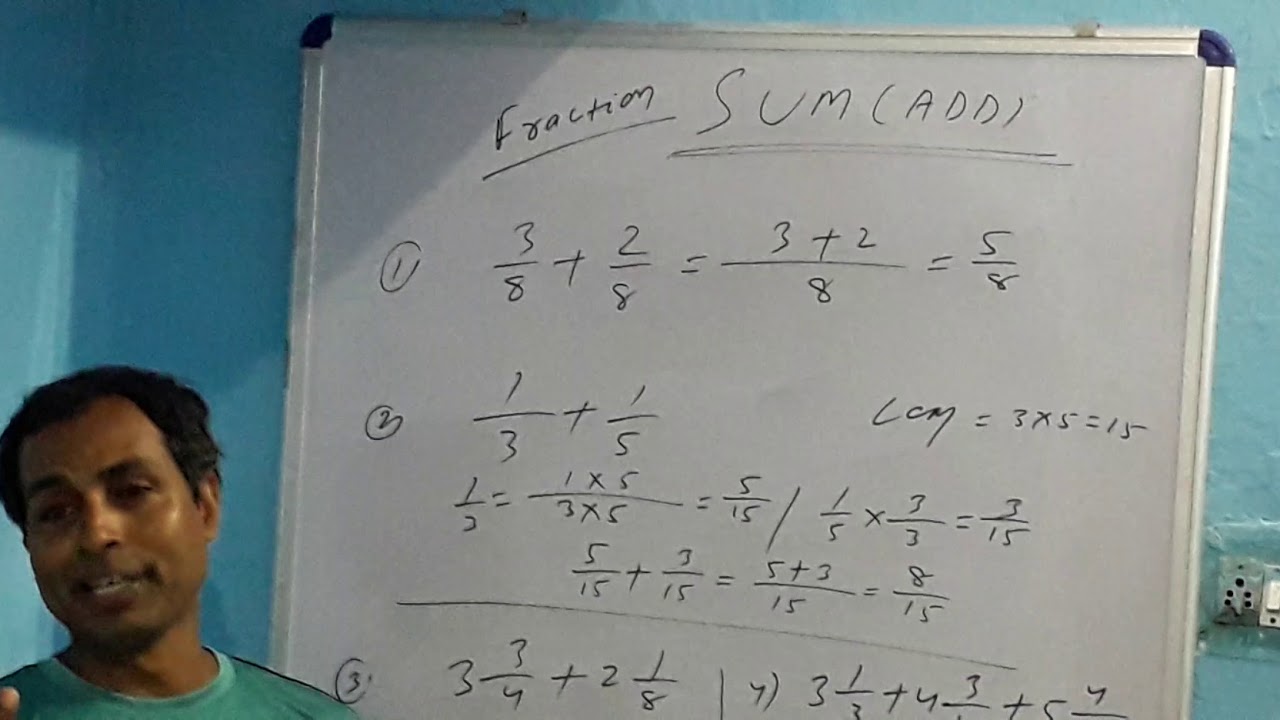 Fraction SUM (ADD)
① 3/8 + 2/8 = 3+2/8 = 5/8
② 1/3 + 1/5 LCM = 3×5=15
1/3 = 1×5/3×5 = 5/15 / 1/5 × 3/3 = 3/15
5/15 + 3/15 = 5+3/15 = 8/15
③ 3 3/4 + 2 1/8 | 4) 3 1/3 + 4 3/ + 5 4/